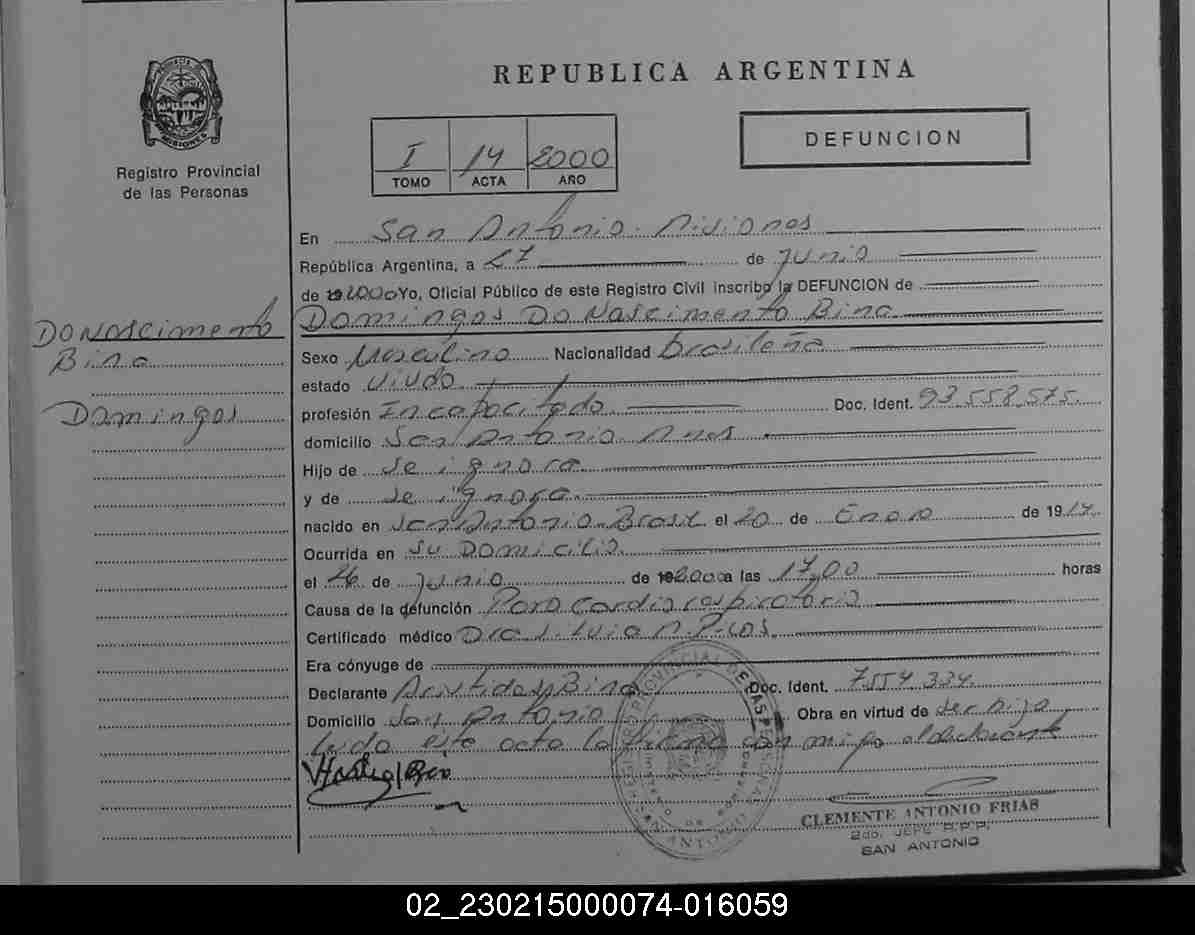 REPUBLICA ARGENTINA
MISIONES
Registro Provincial
de las Personas
I 14 2000
TOMO ACTA AÑO
DEFUNCION
En San Antonio. Misiones
República Argentina, a 27 de Junio
de 2000 Yo, Oficial Público de este Registro Civil inscribo la DEFUNCION de
Domingos Do Nascimento Bino
Do Nascimento
Bino
Domingos
Sexo Masculino Nacionalidad brasileña
estado viudo
profesión Incapacitado Doc. Ident. 93.558.575.
domicilio San Antonio Mnes
Hijo de se ignora
y de se ignora
nacido en San Antonio-Brasil el 20 de Enero de 1914.
Ocurrida en su Domicilio.
el 26 de junio de 2000 a las 17,00 horas
Causa de la defunción Paro cardio respiratorio
Certificado médico Dra.
Era cónyuge de
Declarante Bino Doc. Ident. 7554.334.
Domicilio San Antonio Obra en virtud de ser hijo
Leido este acta la firma con migo el declarante
REGISTRO PROVINCIAL DE LAS PERSONAS
SAN ANTONIO
CLEMENTE ANTONIO FRIAS
2do. JEFE R.P.P.
SAN ANTONIO
02_230215000074-016059